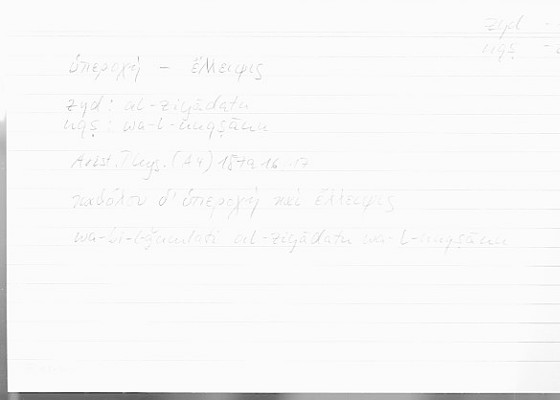 zyd
nqṣ
ὑπεροχή – ἔλλειψις
zyd : al-ziyādatu
nqṣ : wa-l-nuqṣānu
Arist. Phys. (A4) 187a16-17
καθόλου δ' ὑπεροχή καὶ ἔλλειψις
wa-bi-l-ǧumlati al-ziyādatu wa-l-nuqṣānu